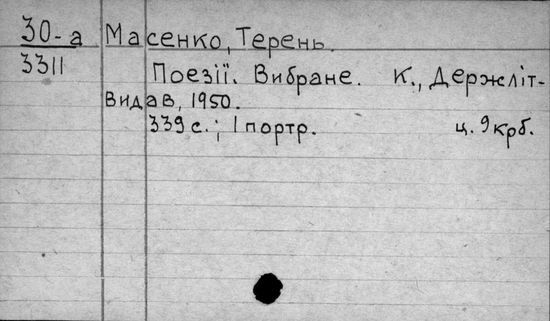 30-а Масенко, Терень.
3311 Поезії. Вибране. К., Держліт-
видав, 1950.
339 с.; 1 портр. ц. 9 крб.